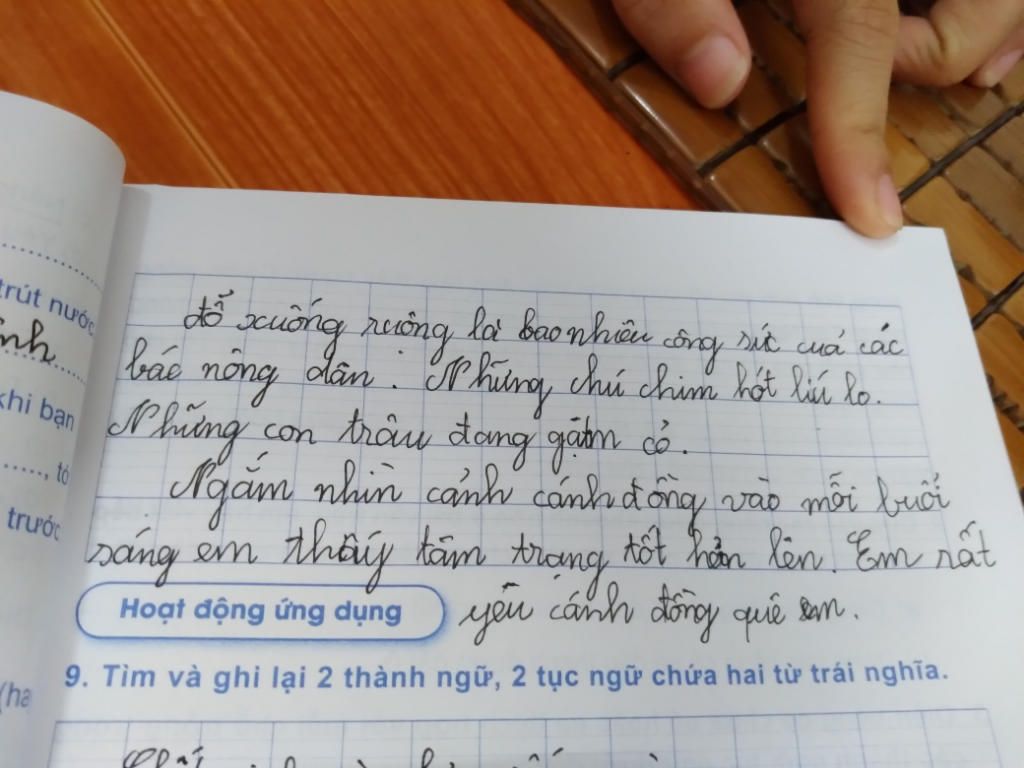 trút nước
ình.
khi bạn
....., tó
trước
(ha
đổ xuống ruộng là bao nhiêu công sức của các
bác nông dân. Những chú chim hót líu lo.
Những con trâu đang gặm cỏ.
Ngắm nhìn cảnh cánh đồng vào mỗi buổi
sáng em thấy tâm trạng tốt hơn lên. Em rất
yêu cánh đồng quê em.
Hoạt động ứng dụng
9. Tìm và ghi lại 2 thành ngữ, 2 tục ngữ chứa hai từ trái nghĩa.